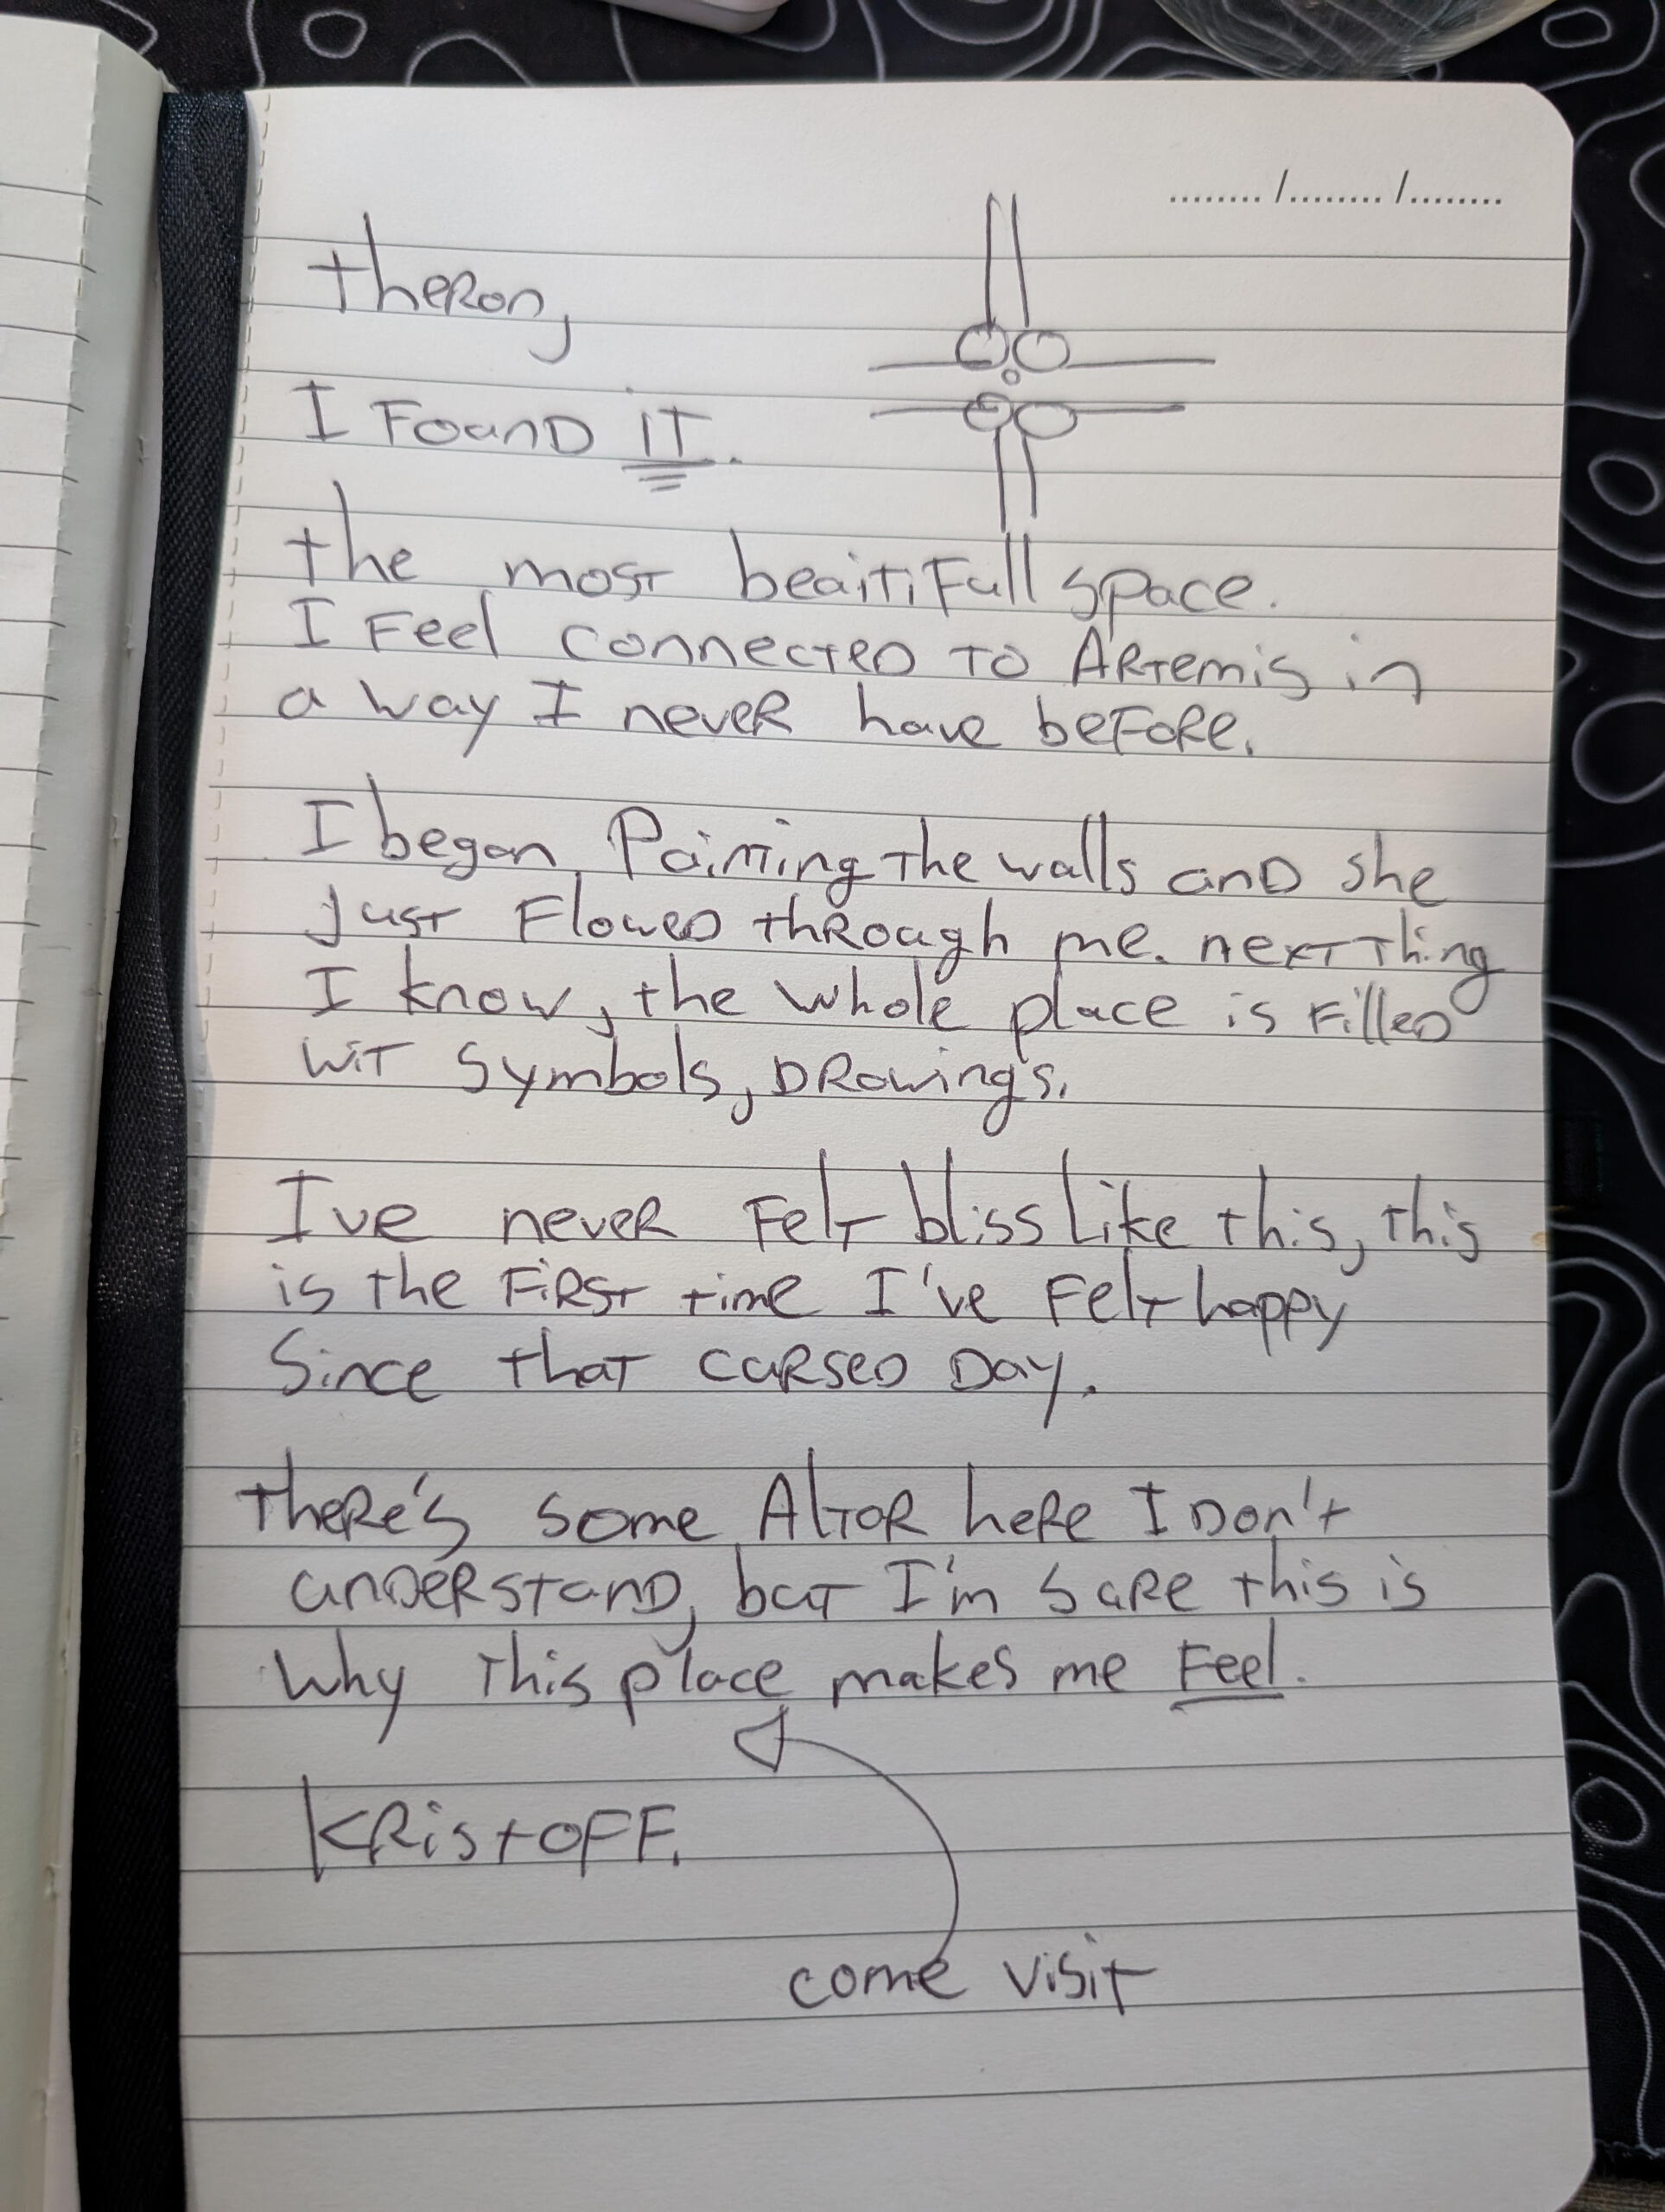 ......../......../........
Theron,
I Found IT.
the most beaitifull space.
I Feel connected to Artemis in
a way I never have before.
I began Painting the walls and she
just Flowed through me. next thing
I know, the whole place is Filled
wit symbols, Drawings.
Ive never Felt bliss Like this, this
is the First time I've Felt happy
Since that cursed Day.
There's some Altor here I Don't
understand, but I'm sure this is
why this place makes me Feel.
Kristoff.
come visit